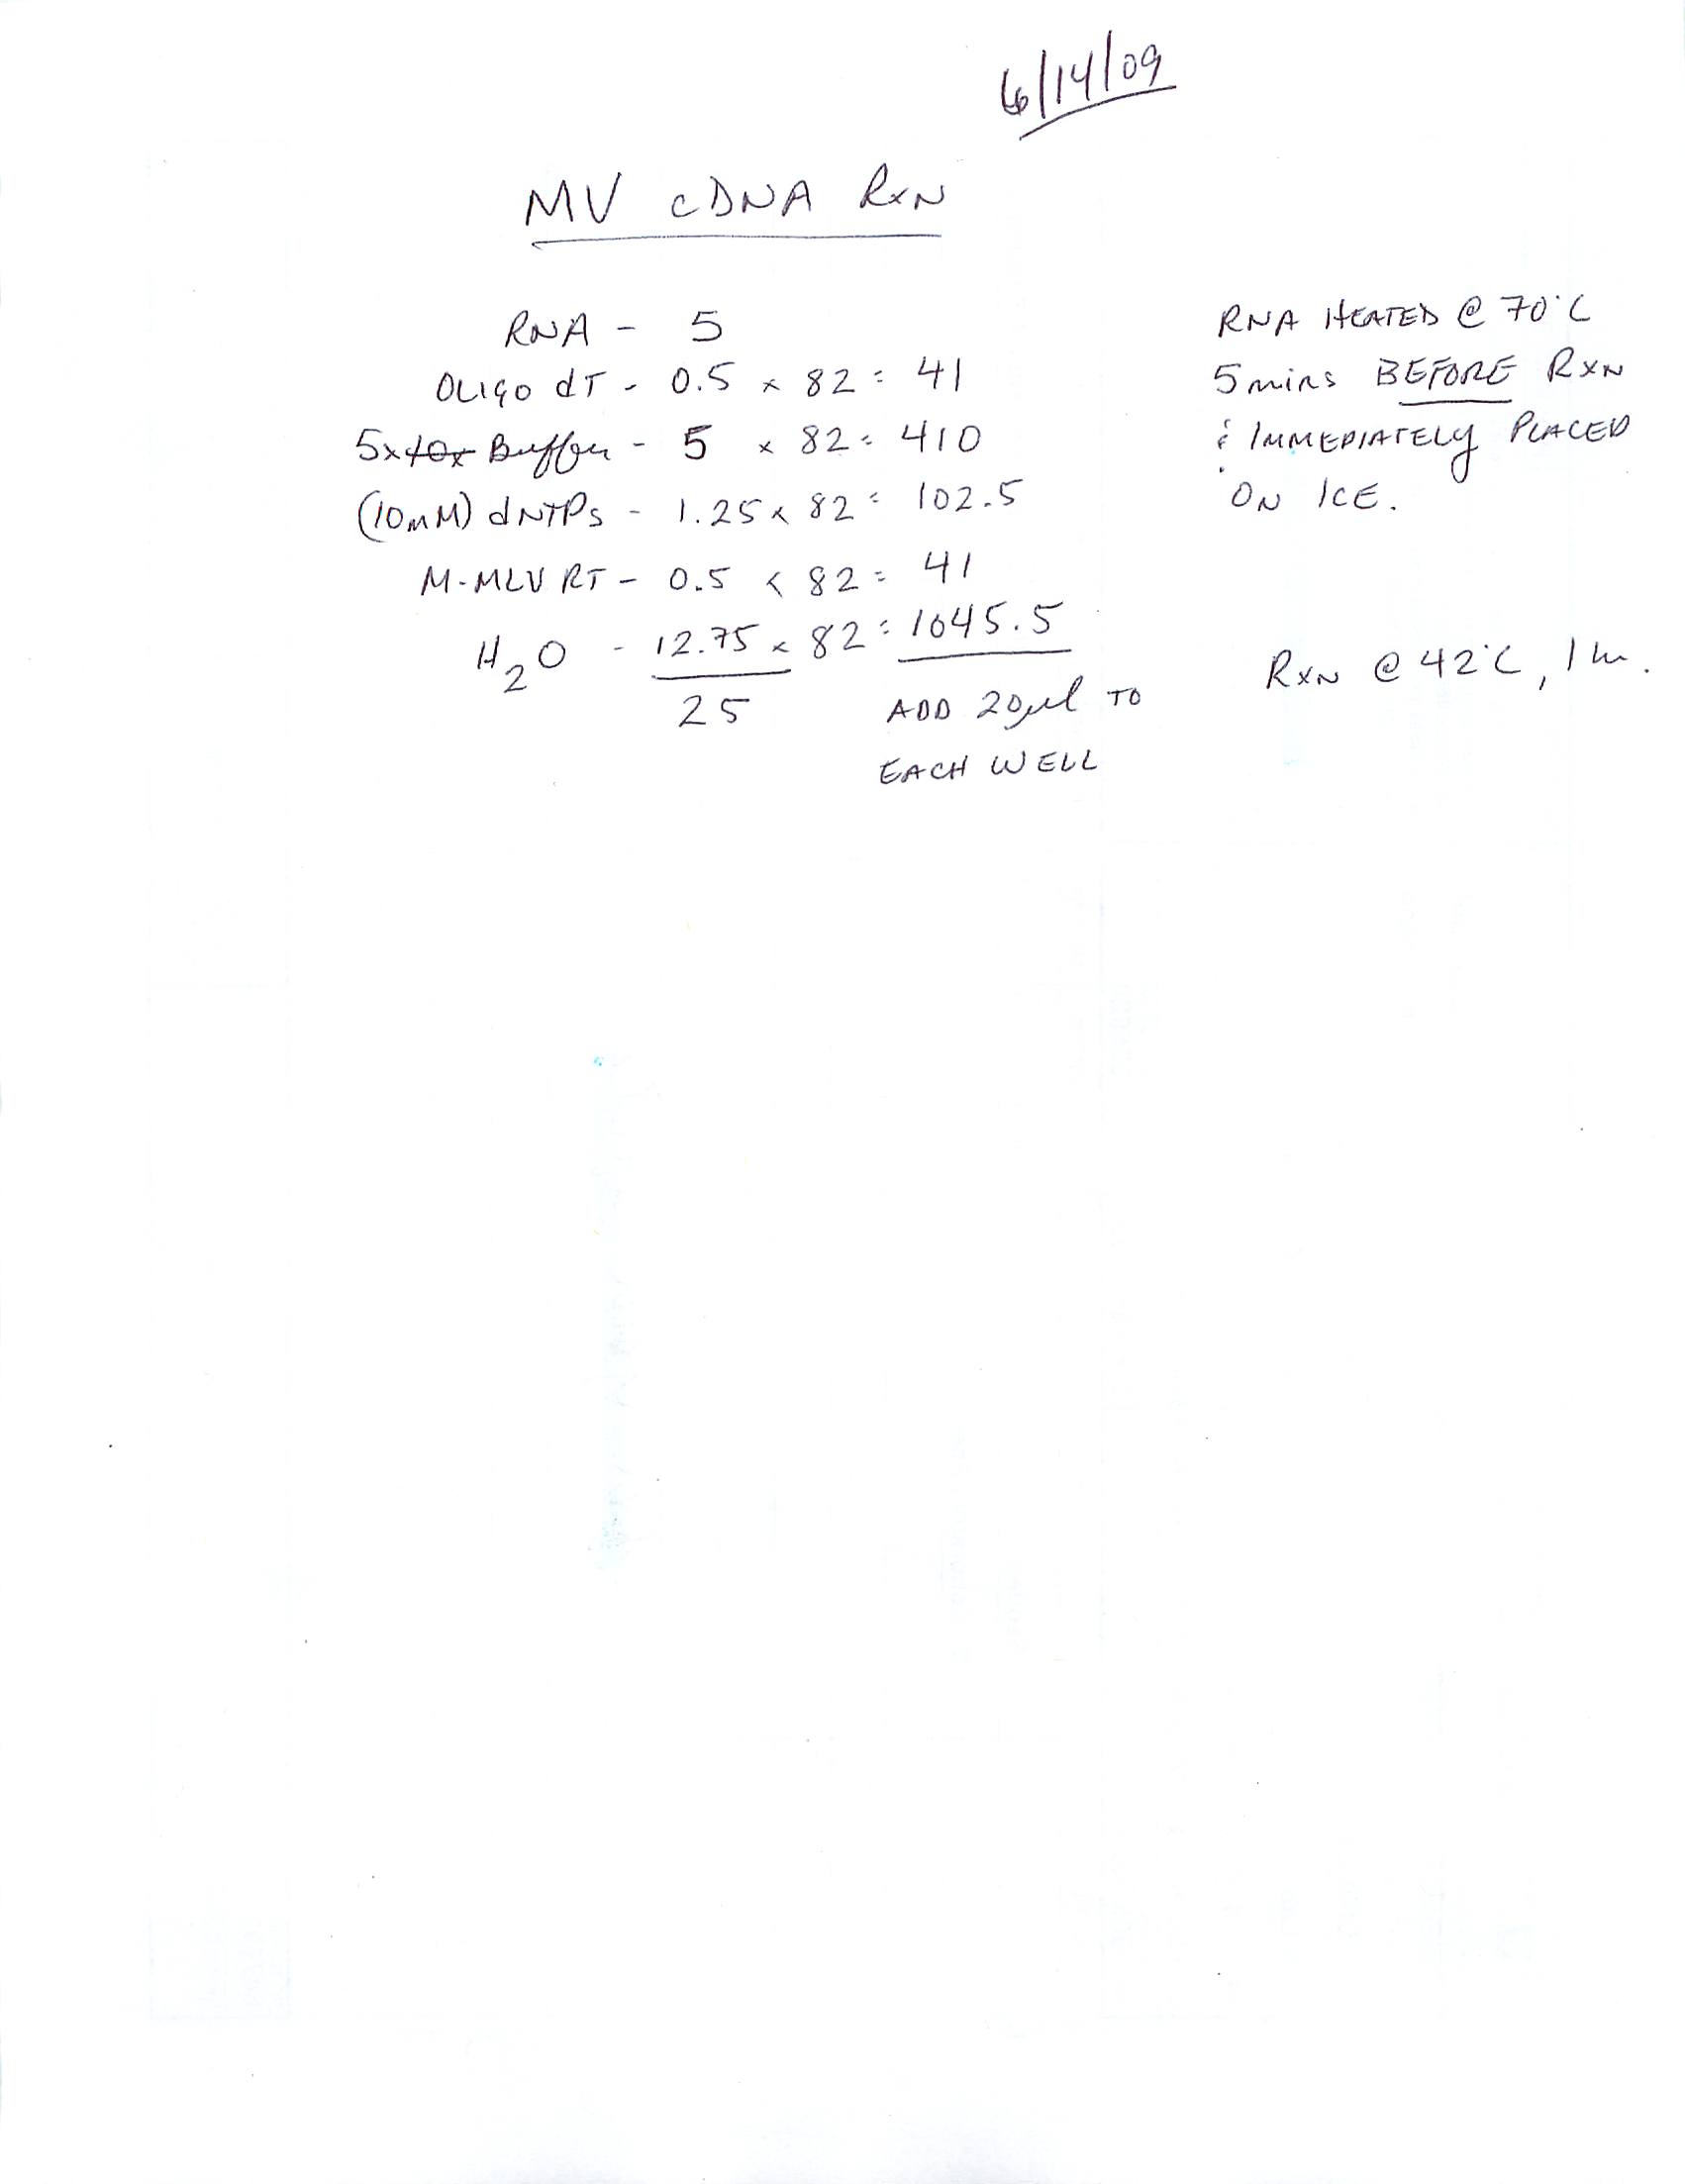 6/14/09
MV cDNA RXN
RNA - 5
OLIGO dT - 0.5 x 82 = 41
5x 10x Buffer - 5 x 82 = 410
(10mM) dNTPs - 1.25 x 82 = 102.5
M-MLV RT - 0.5 x 82 = 41
H2O - 12.75 x 82 = 1045.5
25
ADD 20µl TO
EACH WELL
RNA HEATED @ 70°C
5 mins BEFORE RXN
& IMMEDIATELY PLACED
ON ICE.
RXN @ 42°C, 1 hr.